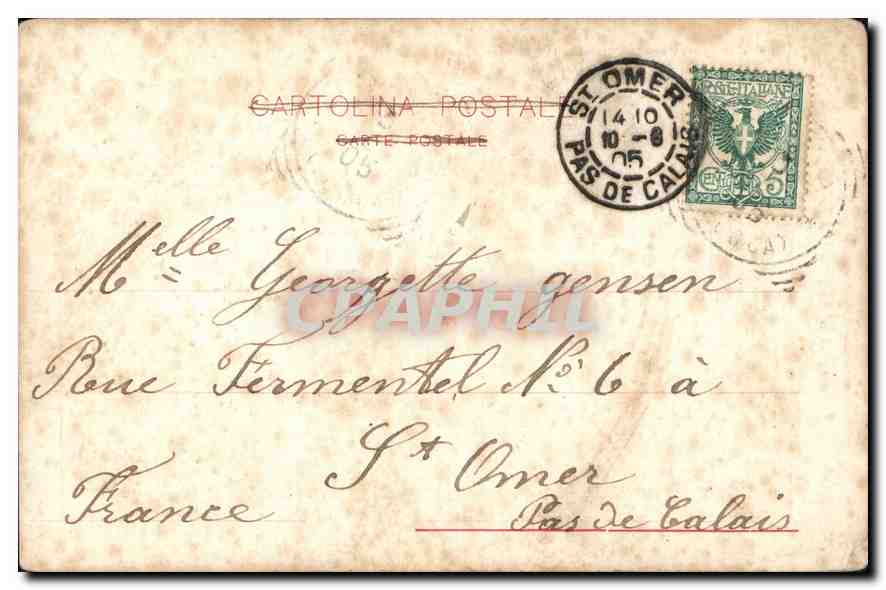 CARTOLINA POSTALE
CARTE POSTALE
ST OMER
14 10
10 -8
05
PAS DE CALAIS
POSTE ITALIANE
CENT. 5
05
Melle Georgette gensen =
CPAPHIL
Rue Fermentel No 6 à
St Omer
France Pas de Calais